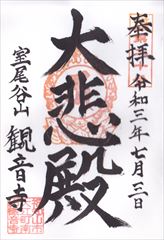 奉拝
令和三年七月三日
大悲殿
室尾谷山
観音寺